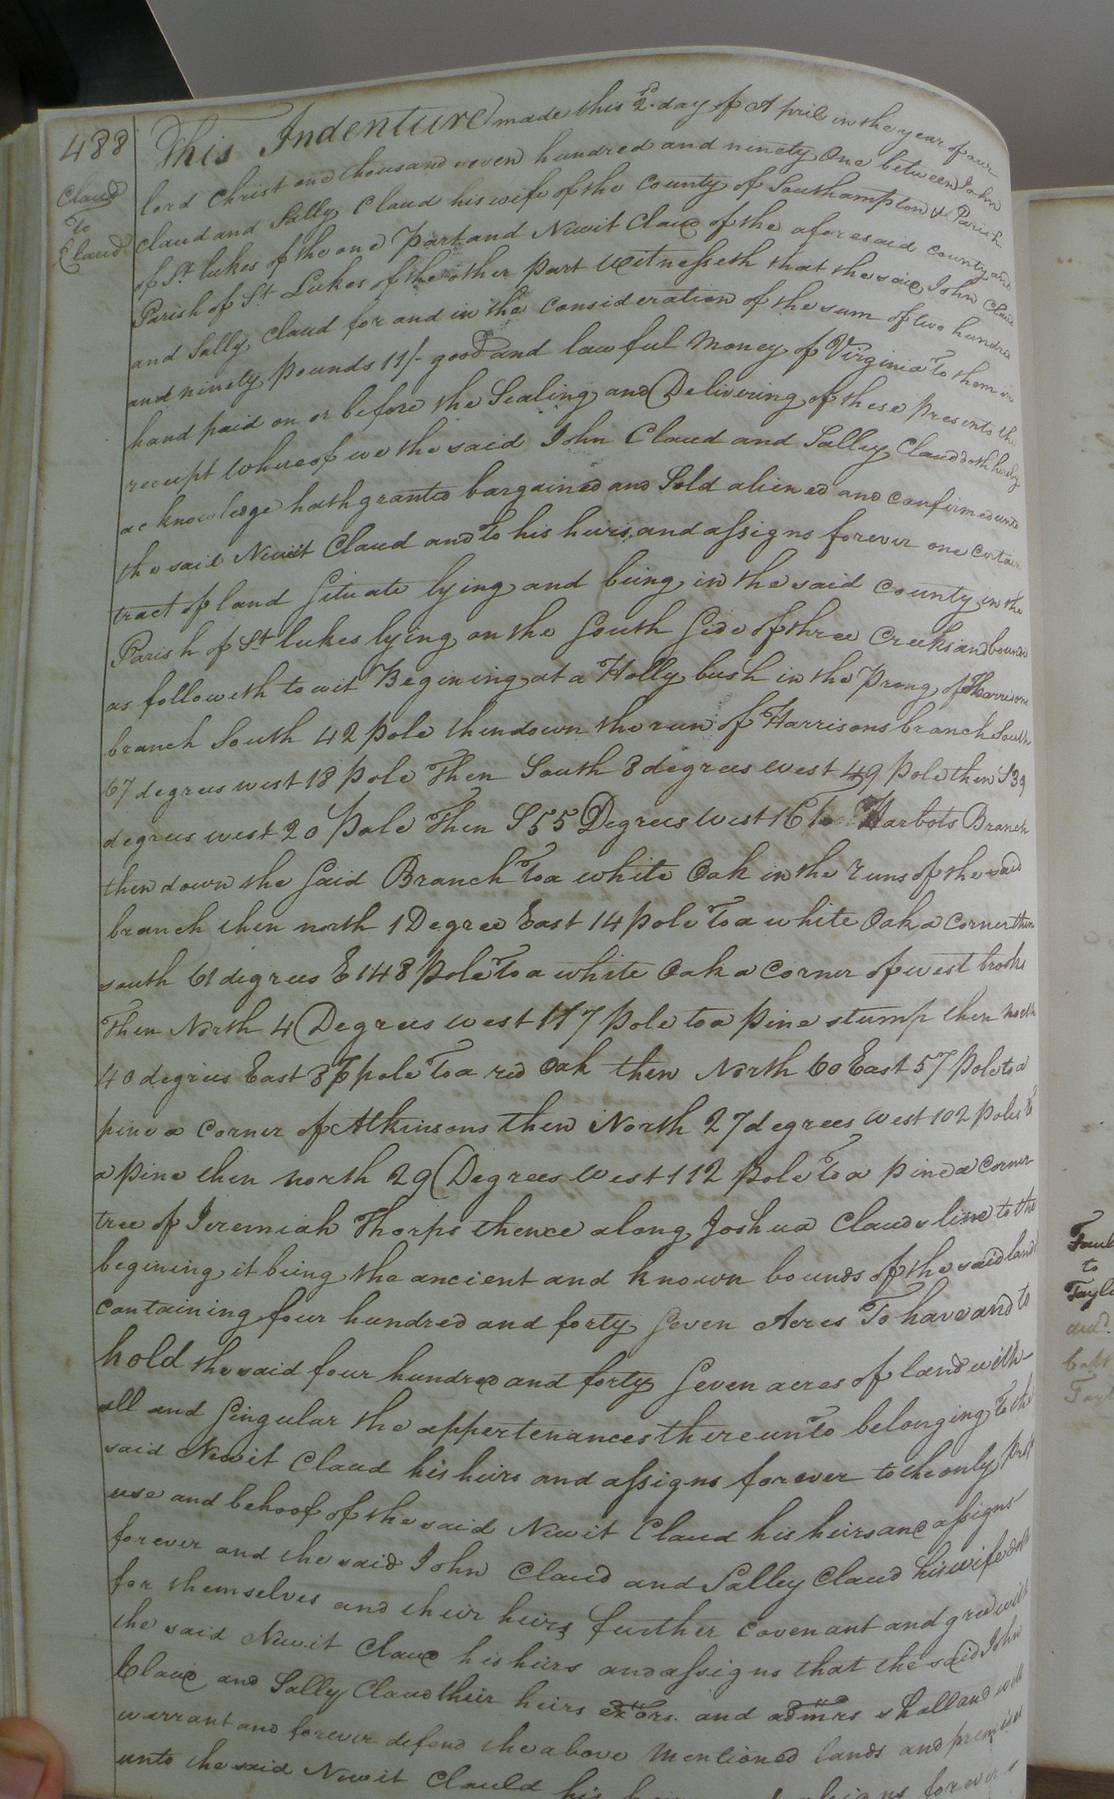 488
Claud
to
Claud
This Indenture made this 2d. day of April in the year of our
lord Christ one thousand seven hundred and ninety One between John
Claud and Sally Claud his wife of the County of Southampton & Parish
of St. lukes of the one part and Newit Claud of the aforesaid County and
Parish of St Lukes of the other part Witnesseth that the said John Claud
and Sally Claud for and in the Consideration of the sum of two hundred
and ninety pounds 11/- good and lawful Money of Virginia To them in
hand paid on or before the Sealing and Delivering of these presents the
receipt Whereof we the said John Claud and Salley Claud doth hereby
acknowledge hath granted bargained and Sold aliened and Confirmed unto
the said Newit Claud and to his heirs and assigns forever one certain
tract of land Situate lying and being in the said County in the
Parish of St lukes lying on the South Side of three Creeks and bounded
as followeth towit Begining at a Holly bush in the Prong of Harrisons
branch South 42 pole then down the run of Harrisons branch South
67 degrees west 18 pole Then South 8 degrees west 49 pole then S 39
degrees west 20 pole Then S 55 Degrees West 16 To Harbots Branch
then down the Said Branch To a white Oak in the runs of the said
branch then north 1 Degree East 14 pole To a white Oak a Corner then
south 61 degrees E 148 pole To a white Oak a Corner of west brooks
Then North 4 Degrees West 117 pole to a pine stump then north
40 degrees East pole To a red Oak then North 60 East 57 pole to a
pine a Corner of Atkinsons then North 27 degrees West 102 poles to
a pine then north 29 Degrees West 112 pole To a pine a Corner
tree of Jeremiah Thorps thence along Joshua Clauds line to the
begining it being the ancient and known bounds of the said land
Containing four hundred and forty Seven Acres To have and to
hold the said four hundred and forty Seven acres of land with
all and Singular the appertenances thereunto belonging To the
said Newit Claud his heirs and assigns forever to the only
use and behoof of the said Newit Claud his heirs and assigns
forever and the said John Claud and Salley Claud his wife doth
for themselves and their heirs further Covenant and gree with
the said Newit Claud his heirs and assigns that the said John
Claud and Sally Claud their heirs exors. and admrs shall and will
warrant and forever defend the above Mentioned lands and premises
unto the said Newit Clauld his assigns forever
to